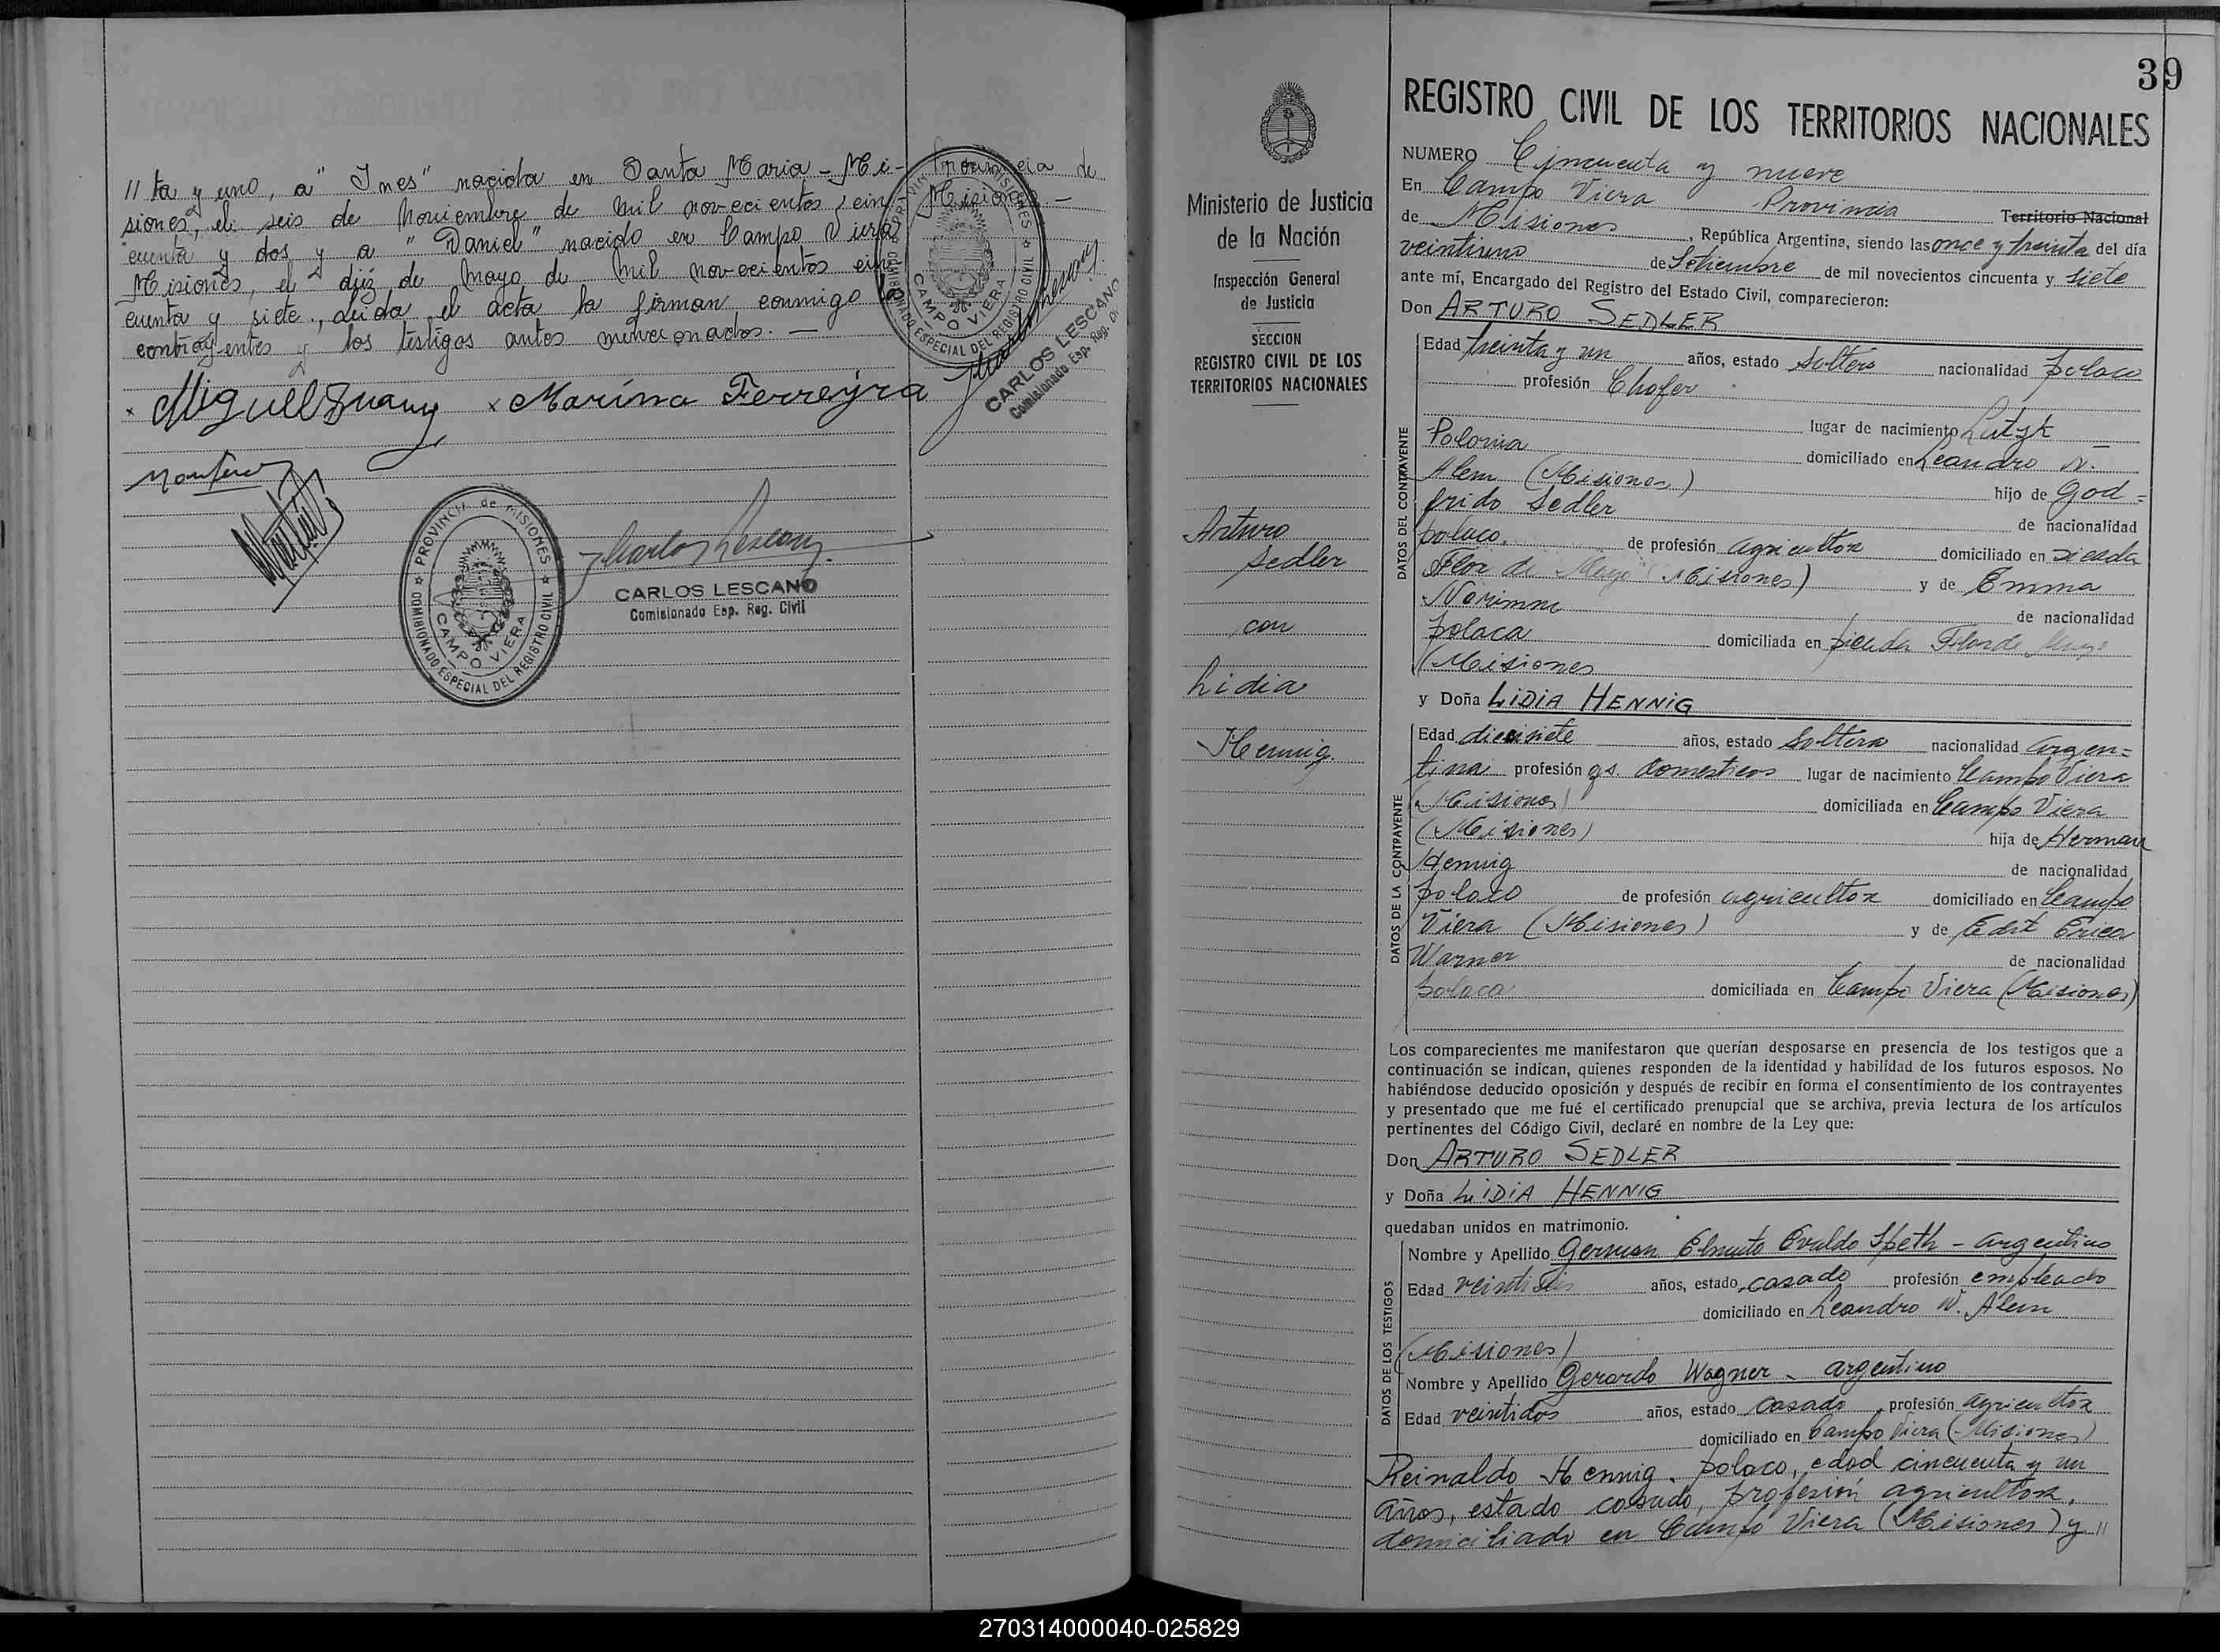 // ta y uno, a " Ines" nacida en Santa Maria - Mi-
siones, el seis de Noviembre de mil novecientos cin
cuenta y dos y a " Daniel" nacido en Campo Viera
Misiones, el diez de Mayo de mil novecientos cin
cuenta y siete., Leida el acta la firman conmigo los
contrayentes y los testigos antes mencionados. —
Provincia de
Misiones. —
PROVINCIA de MISIONES
CAMPO VIERA
COMISIONADO ESPECIAL DEL REGISTRO CIVIL
CARLOS LESCANO
Comisionado Esp. Reg. Civil
x Miguel x Marina Ferreyra
PROVINCIA de MISIONES
CAMPO VIERA
COMISIONADO ESPECIAL DEL REGISTRO CIVIL
Carlos Lescano
CARLOS LESCANO
Comisionado Esp. Reg. Civil
39
Ministerio de Justicia
de la Nación
Inspección General
de Justicia
SECCION
REGISTRO CIVIL DE LOS
TERRITORIOS NACIONALES
Arturo
Sedler
con
Lidia
Hennig.
REGISTRO CIVIL DE LOS TERRITORIOS NACIONALES
NUMERO Cincuenta y nueve
En Campo Viera Provincia Territorio Nacional
de Misiones República Argentina, siendo las once y treinta del día
veintiuno de Setiembre de mil novecientos cincuenta y siete
ante mí, Encargado del Registro del Estado Civil, comparecieron:
Don ARTURO SEDLER
DATOS DEL CONTRAYENTE
Edad treinta y un años, estado Soltero nacionalidad polaco
profesión Chofer
lugar de nacimiento Lutzk
Polonia domiciliado en Leandro N.
Alem (Misiones) hijo de God=
frido Sedler de nacionalidad
polaco, de profesión agricultor domiciliado en Picada
Flor de Mayo (Misiones) y de Emma
de nacionalidad
polaca domiciliada en picada Flor de Mayo
(Misiones
y Doña LIDIA HENNIG
DATOS DE LA CONTRAYENTE
Edad diecisiete años, estado Soltera nacionalidad argen=
tina profesión qs. domesticos lugar de nacimiento Campo Viera
(Misiones) domiciliada en Campo Viera
(Misiones) hija de Herman
Hennig de nacionalidad
polaco de profesión agricultor domiciliado en Campo
Viera (Misiones) y de Edit Erica
Warner de nacionalidad
polaca domiciliada en Campo Viera (Misiones)
Los comparecientes me manifestaron que querían desposarse en presencia de los testigos que a
continuación se indican, quienes responden de la identidad y habilidad de los futuros esposos. No
habiéndose deducido oposición y después de recibir en forma el consentimiento de los contrayentes
y presentado que me fué el certificado prenupcial que se archiva, previa lectura de los artículos
pertinentes del Código Civil, declaré en nombre de la Ley que:
Don ARTURO SEDLER
y Doña LIDIA HENNIG
quedaban unidos en matrimonio.
DATOS DE LOS TESTIGOS
Nombre y Apellido German Ernesto Evaldo Speth - argentino
Edad veintiseis años, estado casado profesión empleado
domiciliado en Leandro N. Alem
(Misiones)
Nombre y Apellido Gerardo Wagner - argentino
Edad veintidos años, estado casado profesión agricultor
domiciliado en Campo Viera (Misiones)
Reinaldo Hennig. polaco, edad cincuenta y un
años, estado casado, profesión agricultor,
domiciliado en Campo Viera (Misiones) y //
270314000040-025829